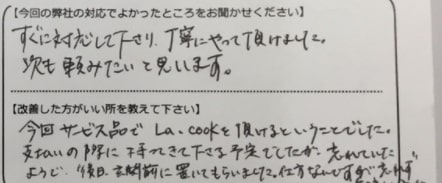 【今回の弊社の対応でよかったところをお聞かせください】
すぐに対応して下さり、丁寧にやって頂けました。
次も頼みたいと思います。
【改善した方がいい所を教えて下さい】
今回サービス品でLa.cookを頂けるということでした。
支払いの際に持ってきて下さる予定でしたが、忘れていた
ようで、後日玄関前に置いてもらいました。仕方ないんですが